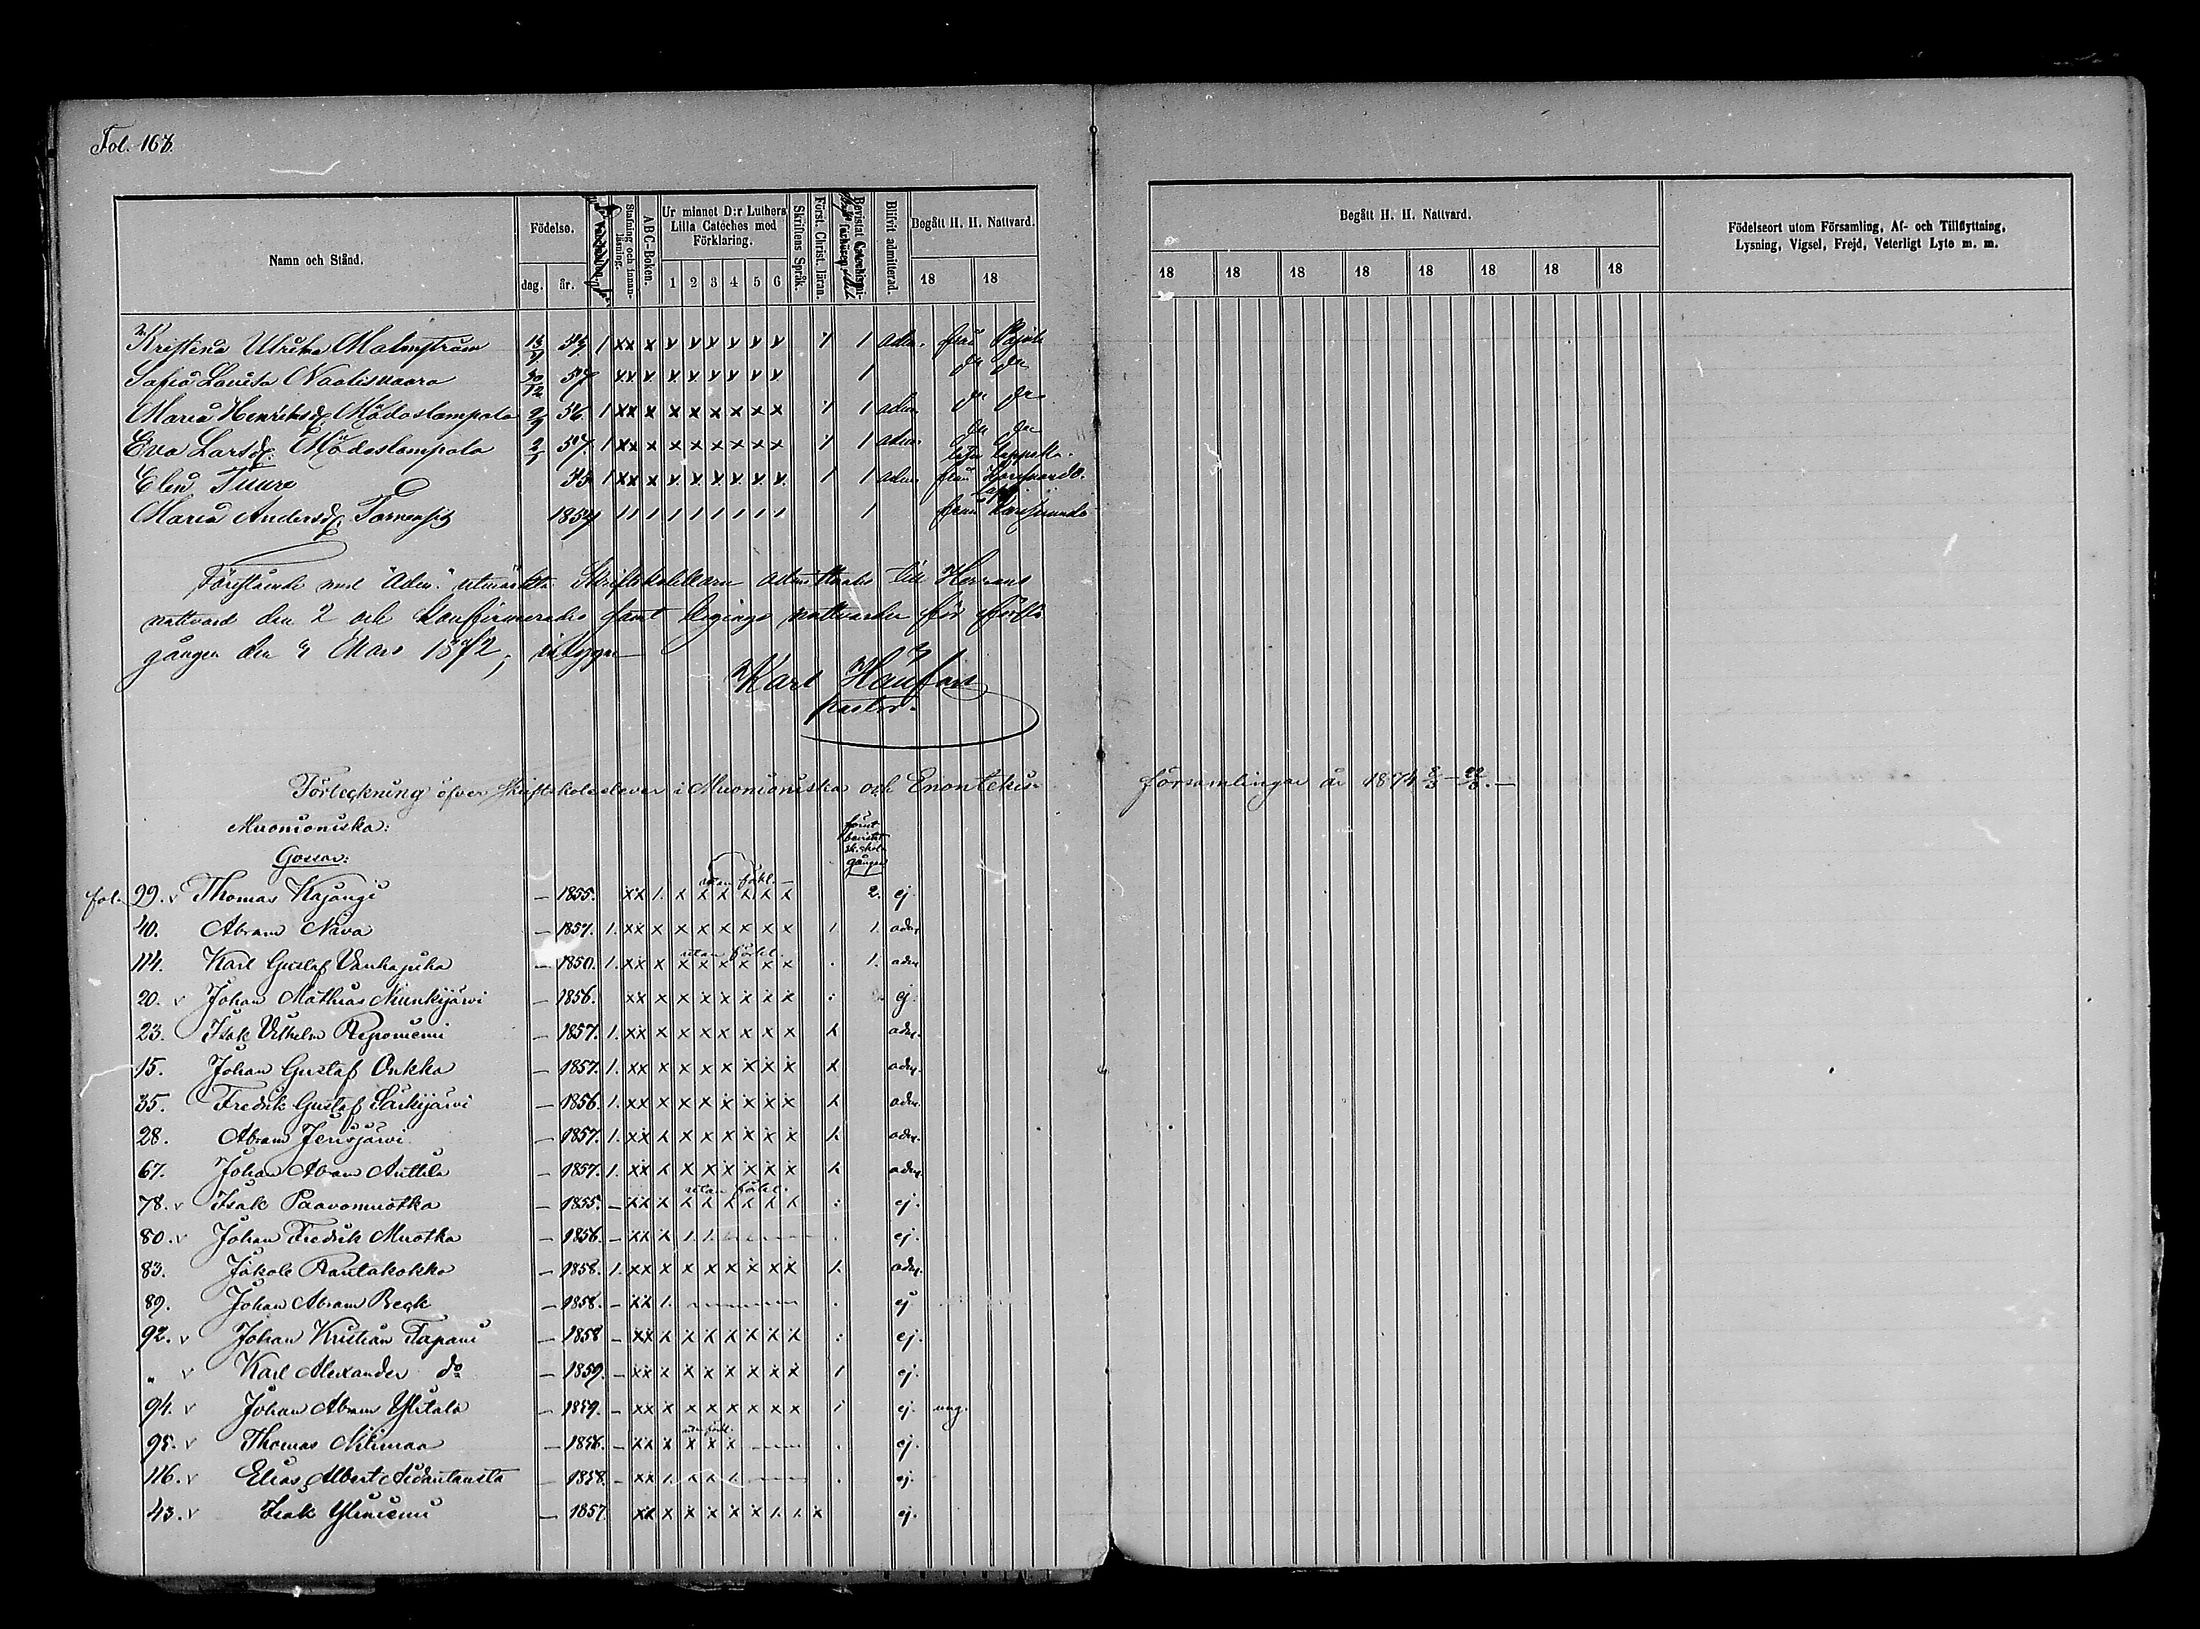 Fol. 168.
Namn och Stånd.
Födelse.
dag. år.
Stafning och innanläsning.
ABC-Boken.
Ur minnet D:r Luthers Lilla Cateches med Förklaring.
1 2 3 4 5 6
Skriftens Språk.
Först. Christ. läran.
Bevistat
Blifvit admitterad.
Begått H. H. Nattvard.
18 18
Begått H. H. Nattvard.
18 18 18 18 18 18 18 18
Födelseort utom Församling, Af- och Tillflyttning,
Lysning, Vigsel, Frejd, Veterligt Lyte m. m.
Kristina Ulrika Malmström 1 xx x v v v v v v 1 adm. från Pajala
Sofia Lovisa Naalisvaara 30/12 57 xx v v v v v v v 1 do do
Maria Henriksdr Mödoslompolo 56 1 xx x x x x x x x 1 adm. do do
Eva Larsdr Mödoslompolo 57. 1 xx x x x x x x x 1 adm. do do
Elin Tuure 1 xx x 1 1 adm. från
Maria Andersdr 1 från
Förestående med "Adm." utmärkta Skriftskolebarn admitterades till Herrans
nattvard den 2 och Konfirmerades samt begingo nattvarden för första
gången den 3 Mars 1872, intygar
Karl
pastor.
Förteckning öfver Skriftskoleelever i Muonioniska och Enontekis
församlingar år 1874
Muonioniska:
Gossar:
förut bevistat sk.skol- gånger
utan förkl.
fol. 29. v Thomas Kajangi — 1855. xx 1. x x x x x x 2. ej.
40. Abram Niva — 1857. 1. xx x x x x x x x 1. 1. adm.
utan förkl.
114. Karl Gustaf Vanhapiha — 1850. 1. xx x x x x x x x 1. adm.
20. v Johan Mathias Niinikijärvi — 1856. xx x x x x x x x ej.
23. Isak Vilhelm Reponiemi — 1857. 1. xx x x x x x x x x adm.
15. Johan Gustaf Onkka — 1857. 1. xx x x x x x x x x adm.
35. Fredrik Gustaf Särkijärvi — 1856. 1. xx x x x x x x x x adm.
28. Abram Jerisjärvi — 1857. 1. xx x x x x x x x x adm.
67. Johan Abram Anttila — 1857. 1. xx x x x x x x x x adm.
utan förkl.
78. v Isak Paavomuotka — 1855. — xx x x x x x x x : ej.
80. v Johan Fredrik Muotka — 1856. — xx x 1. 1. ej.
83. Jakob Rautakokko — 1858. 1. xx x x x x x x x 1. adm.
89. Johan Abram Beck — 1858. — xx 1. ej
92. v Johan Kristian Tapani — 1858 — xx x x x x x x x : ej.
" v Karl Alexander do — 1859. — xx x x x x x x x 1 ej.
94. v Johan Abram Ylitalo — 1859. — xx x x x x x x x 1 ej. ung.
utan förkl.
95. v Thomas Nilimaa — 1856. — xx x x x x ej.
116. v Elias Albert Aidantausta — 1858. — xx 1. x x 1. ej.
43. v Isak Yliniemi — 1857. xx x x x x x 1. 1. x ej.